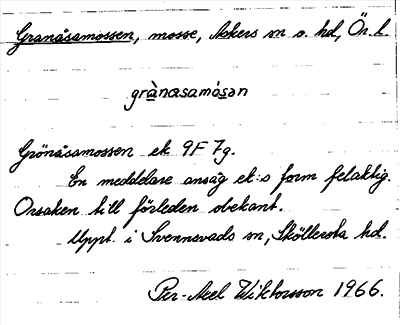 Granåsamossen, mosse, Askers sn o. hd, Ör. l.
grànåsamåsən
Grönåsamossen ek 9F 7g.
En meddelare ansåg ek:s form felaktig.
Orsaken till förleden obekant.
Uppt. i Svennevads sn, Sköllersta hd.
Per-Axel Wiktorsson 1966.